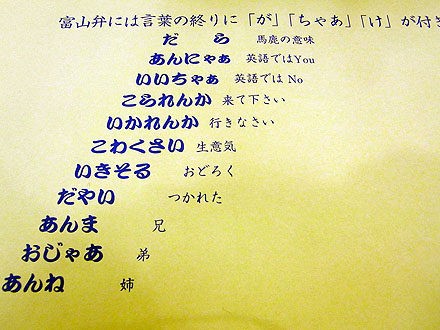 富山弁には言葉の終りに「が」「ちゃあ」「け」が付き
だら 馬鹿の意味
あんにゃぁ 英語ではYou
いいちゃぁ 英語では No
こられんか 来て下さい
いかれんか 行きなさい
こわくさい 生意気
いきそる おどろく
だやい つかれた
あんま 兄
おじゃあ 弟
あんね 姉